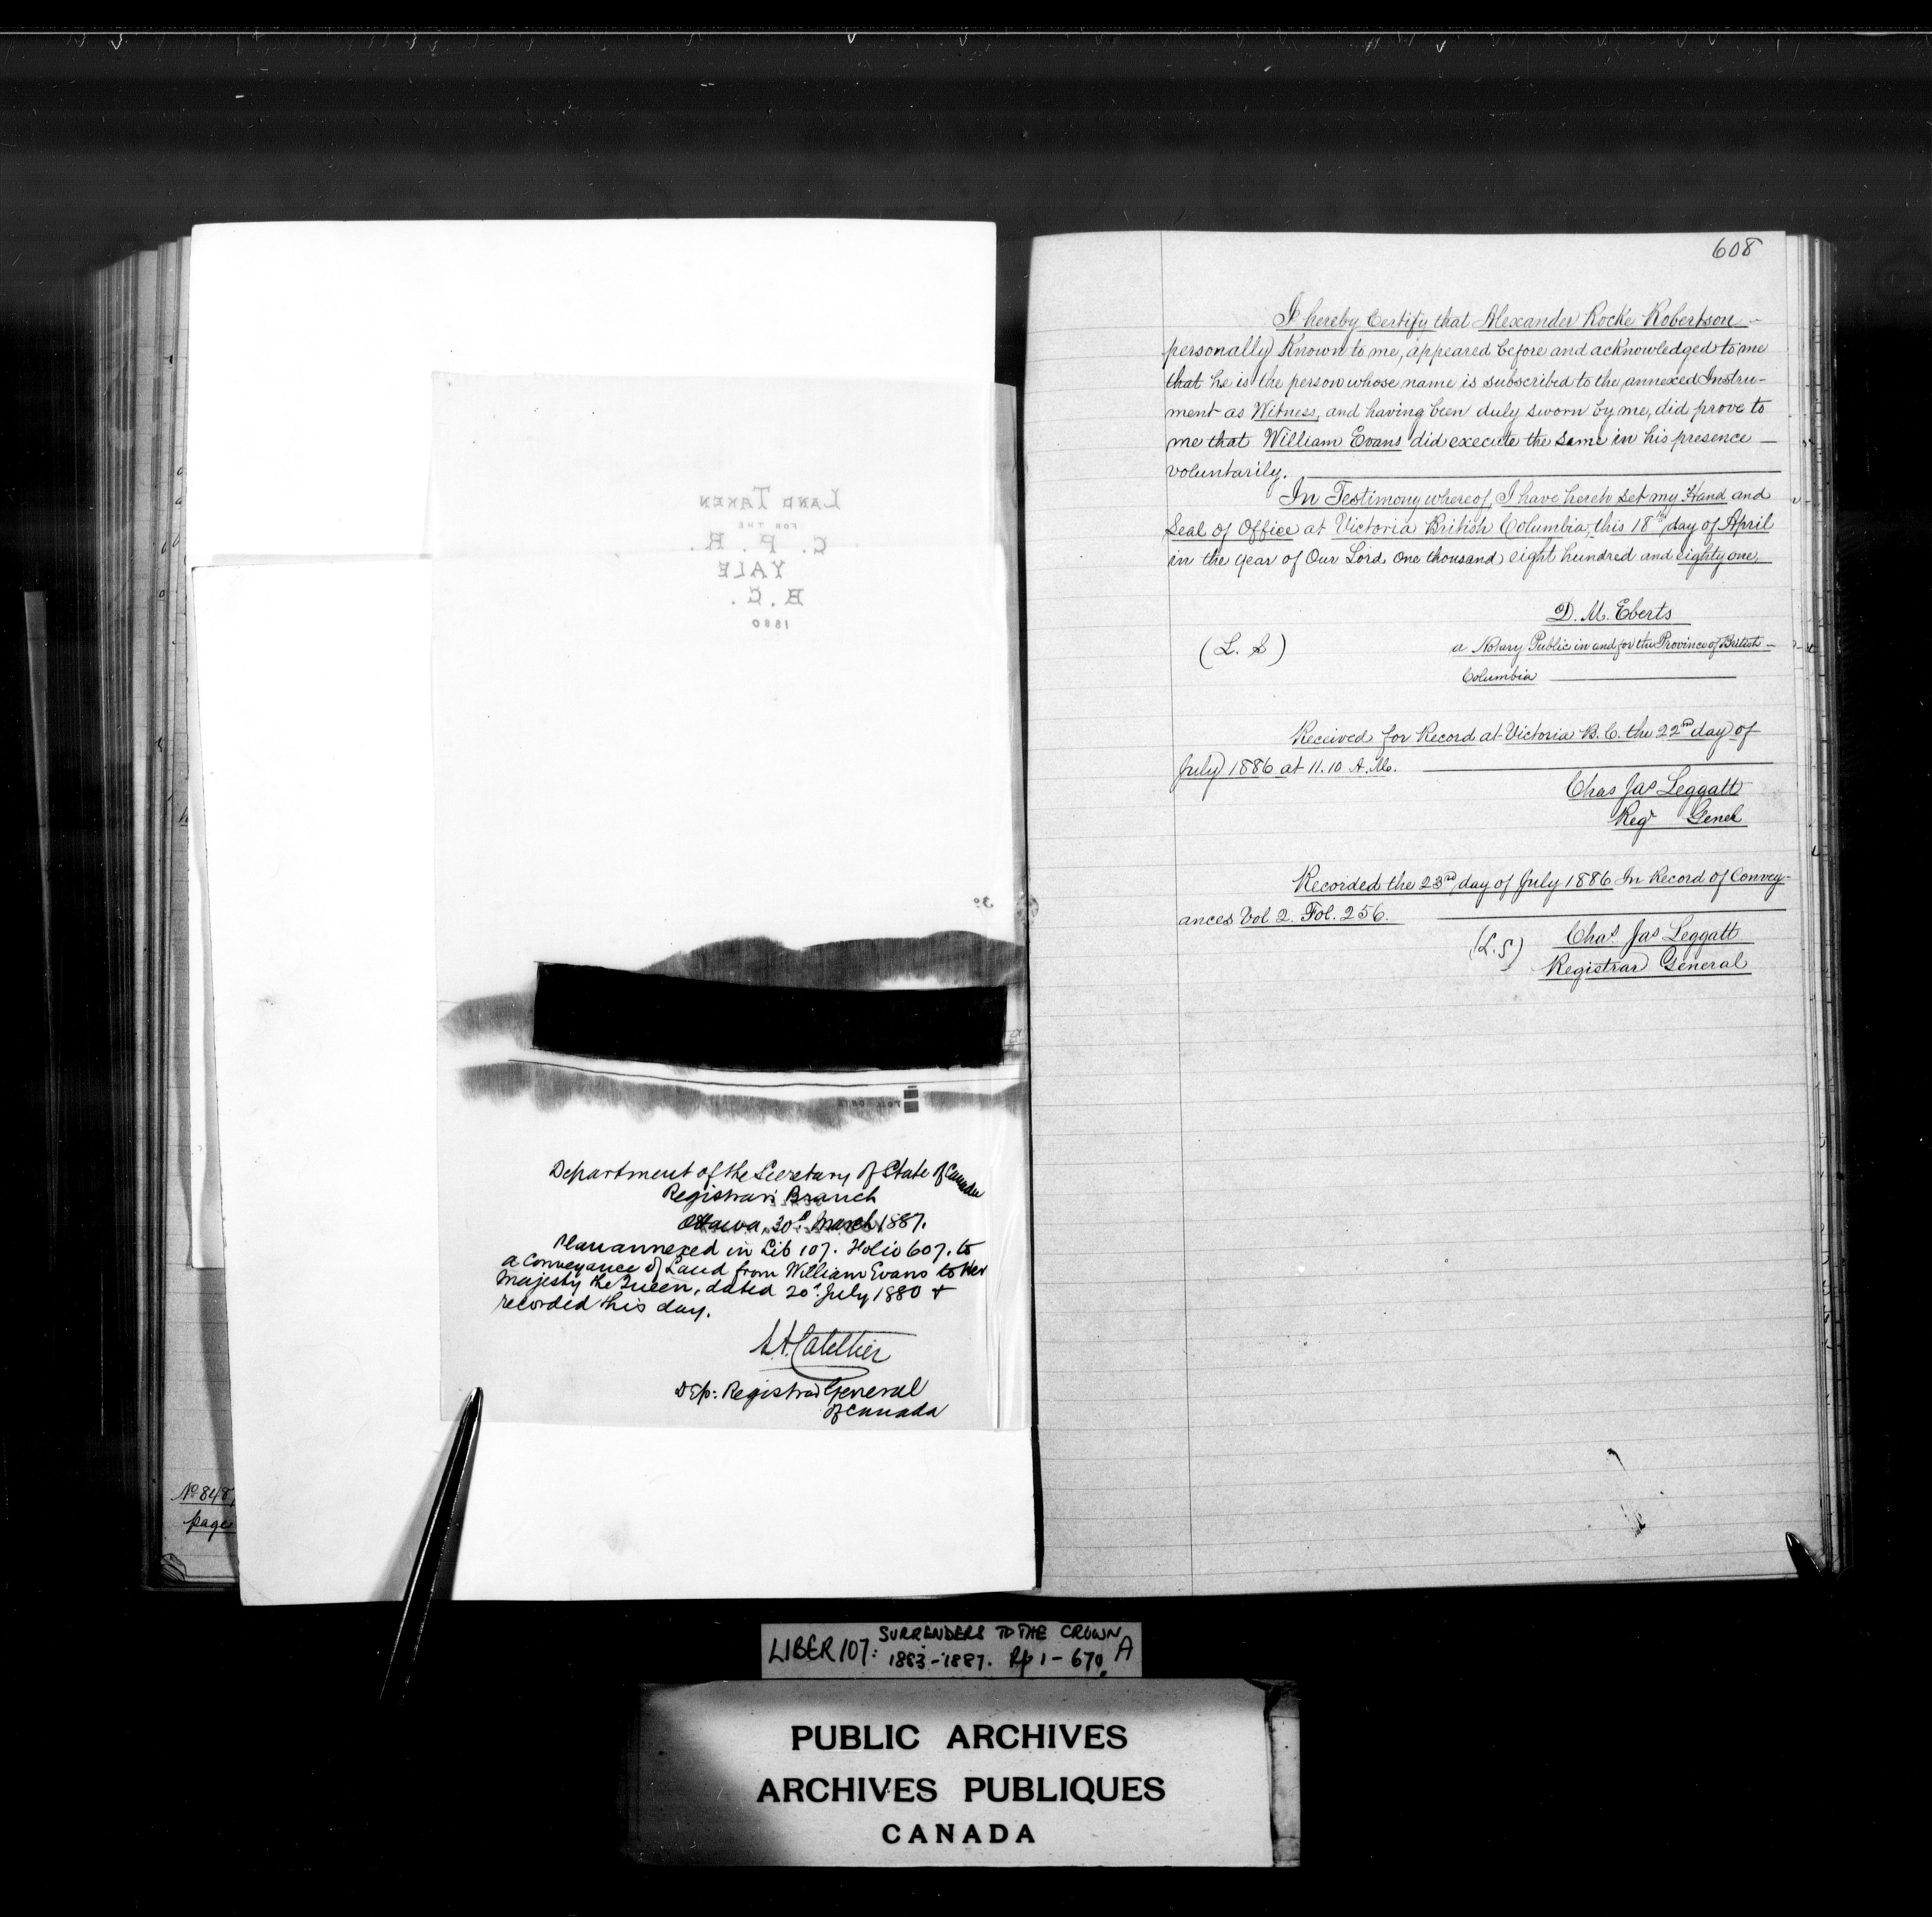 LAND TAKEN
FOR THE
C. P. R.
YALE
B. C.
1880
Department of the Secretary of State of Canada
Registrar's Branch
Ottawa, 30th March 1887.
Plan annexed in Lib 107. Folio 607. to
a Conveyance of Land from William Evans to Her
Majesty the Queen, dated 20th July 1880 &
recorded this day.
Dep: Registrar General
of Canada
No 848
page
608
I hereby Certify that Alexander Rocke Robertson -
personally Known to me, appeared before and acknowledged to me
that he is the person whose name is subscribed to the annexed Instru-
ment as Witness, and having been duly sworn by me, did prove to
me that William Evans did execute the same in his presence —
voluntarily.
In Testimony whereof, I have hereto set my Hand and
Seal of Office at Victoria British Columbia, this 18th day of April
in the year of Our Lord One thousand eight hundred and eighty one,
D. M. Eberts
(L. S)
a Notary Public in and for the Province of British -
Columbia
Received for Record at Victoria B. C. the 22nd day of
July 1886 at 11.10 A.M.
Chas Jas Leggatt
Regr Genel
Recorded the 23rd day of July 1886 In Record of Convey-
ances Vol 2. Fol. 256.
(L.S) Chas Jas Leggatt
Registrar General
LIBER 107: SURRENDERS TO THE CROWN,
1883-1887. Pp 1-670. A
PUBLIC ARCHIVES
ARCHIVES PUBLIQUES
CANADA